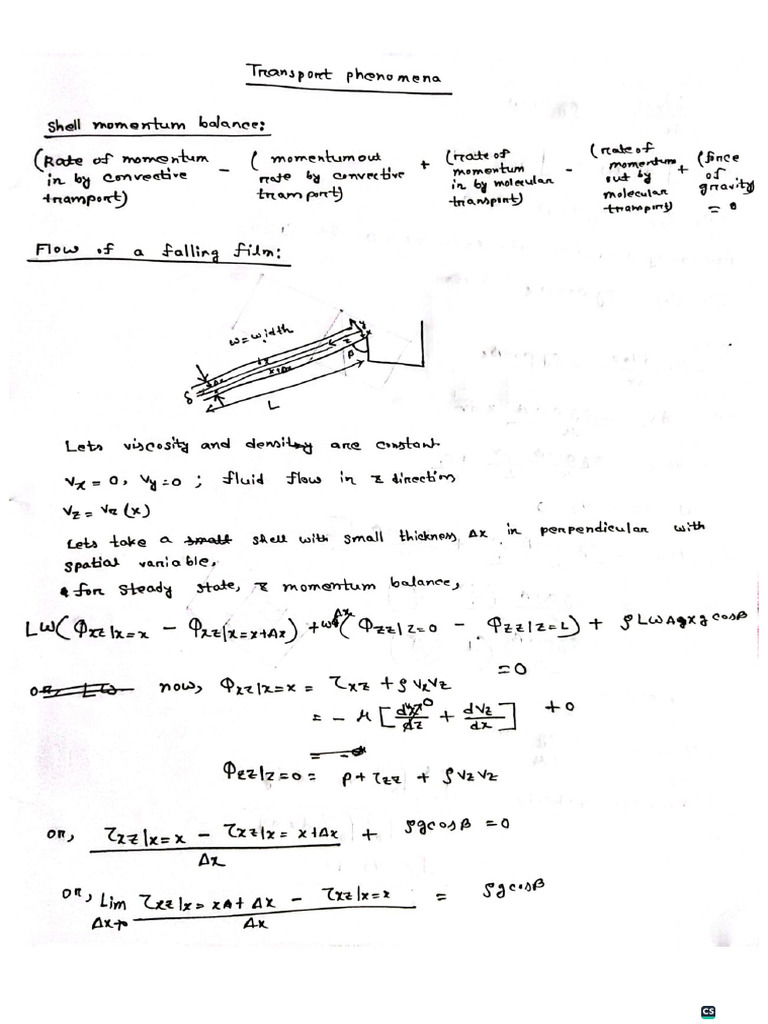 Transport phenomena
Shell momentum balance:
(Rate of momentum in by convective tramport) - (momentum out rate by convective tramport) + (rate of momentum in by molecular transport) - (rate of momentum out by molecular transport) + (force of gravity) = 0
Flow of a falling film:
w = width
y
x
z
β
x
x+Δx
Δx
δ
L
Lets viscosity and density are constant
Vx = 0, Vy = 0 ; fluid flow in z direction
Vz = Vz (x)
Lets take a small shell with small thickness Δx in perpendicular with
spatial variable,
for steady state, z momentum balance,
LW(Φxz|x=x − Φxz|x=x+Δx) + WΔx(Φzz|z=0 − Φzz|z=L) + ρLWΔx g cosβ
= 0
now, Φxz|x=x = τxz + ρVxVz
= − μ [dVx/dz⁰ + dVz/dx] + 0
Φzz|z=0 = P + τzz + ρVzVz
or, (τxz|x=x − τxz|x=x+Δx)/Δx + ρgcosβ = 0
or, Lim Δx→0 (τxz|x=x+Δx − τxz|x=x)/Δx = ρgcosβ
CS